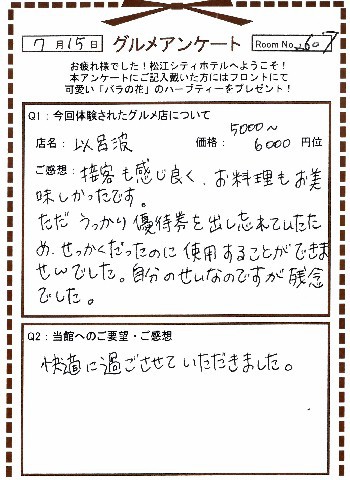 7月15日 グルメアンケート Room No. 607
お疲れ様でした！松江シティホテルへようこそ！
本アンケートにご記入戴いた方にはフロントにて
可愛い「バラの花」のハーブティーをプレゼント！
Q1：今回体験されたグルメ店について
店名：以呂波 価格：5000～6000円位
ご感想：接客も感じ良く、お料理もお美
味しかったです。
ただうっかり優待券を出し忘れていたた
め、せっかくだったのに使用することができま
せんでした。自分のせいなのですが残念
でした。
Q2：当館へのご要望・ご感想
快適に過ごさせていただきました。